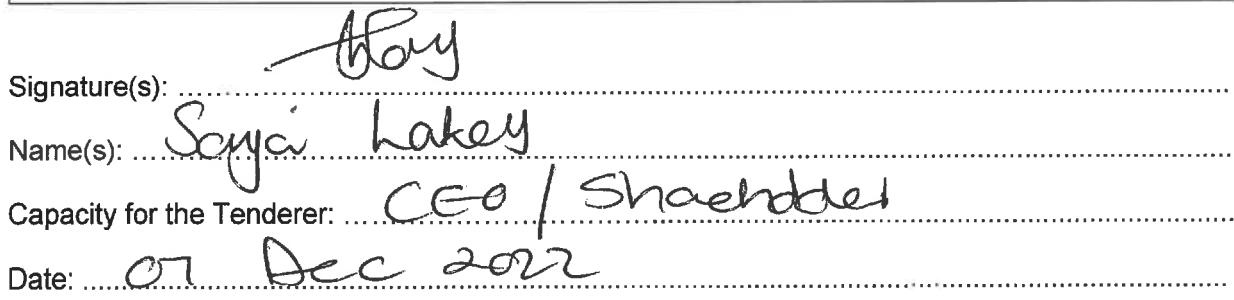 Signature(s):
Name(s): Sonja Lakey
Capacity for the Tenderer: CEO / Shareholder
Date: 07 Dec 2022